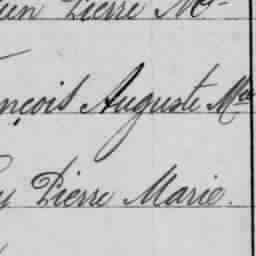 Pierre M
nçois Auguste Mie
y Pierre Marie.